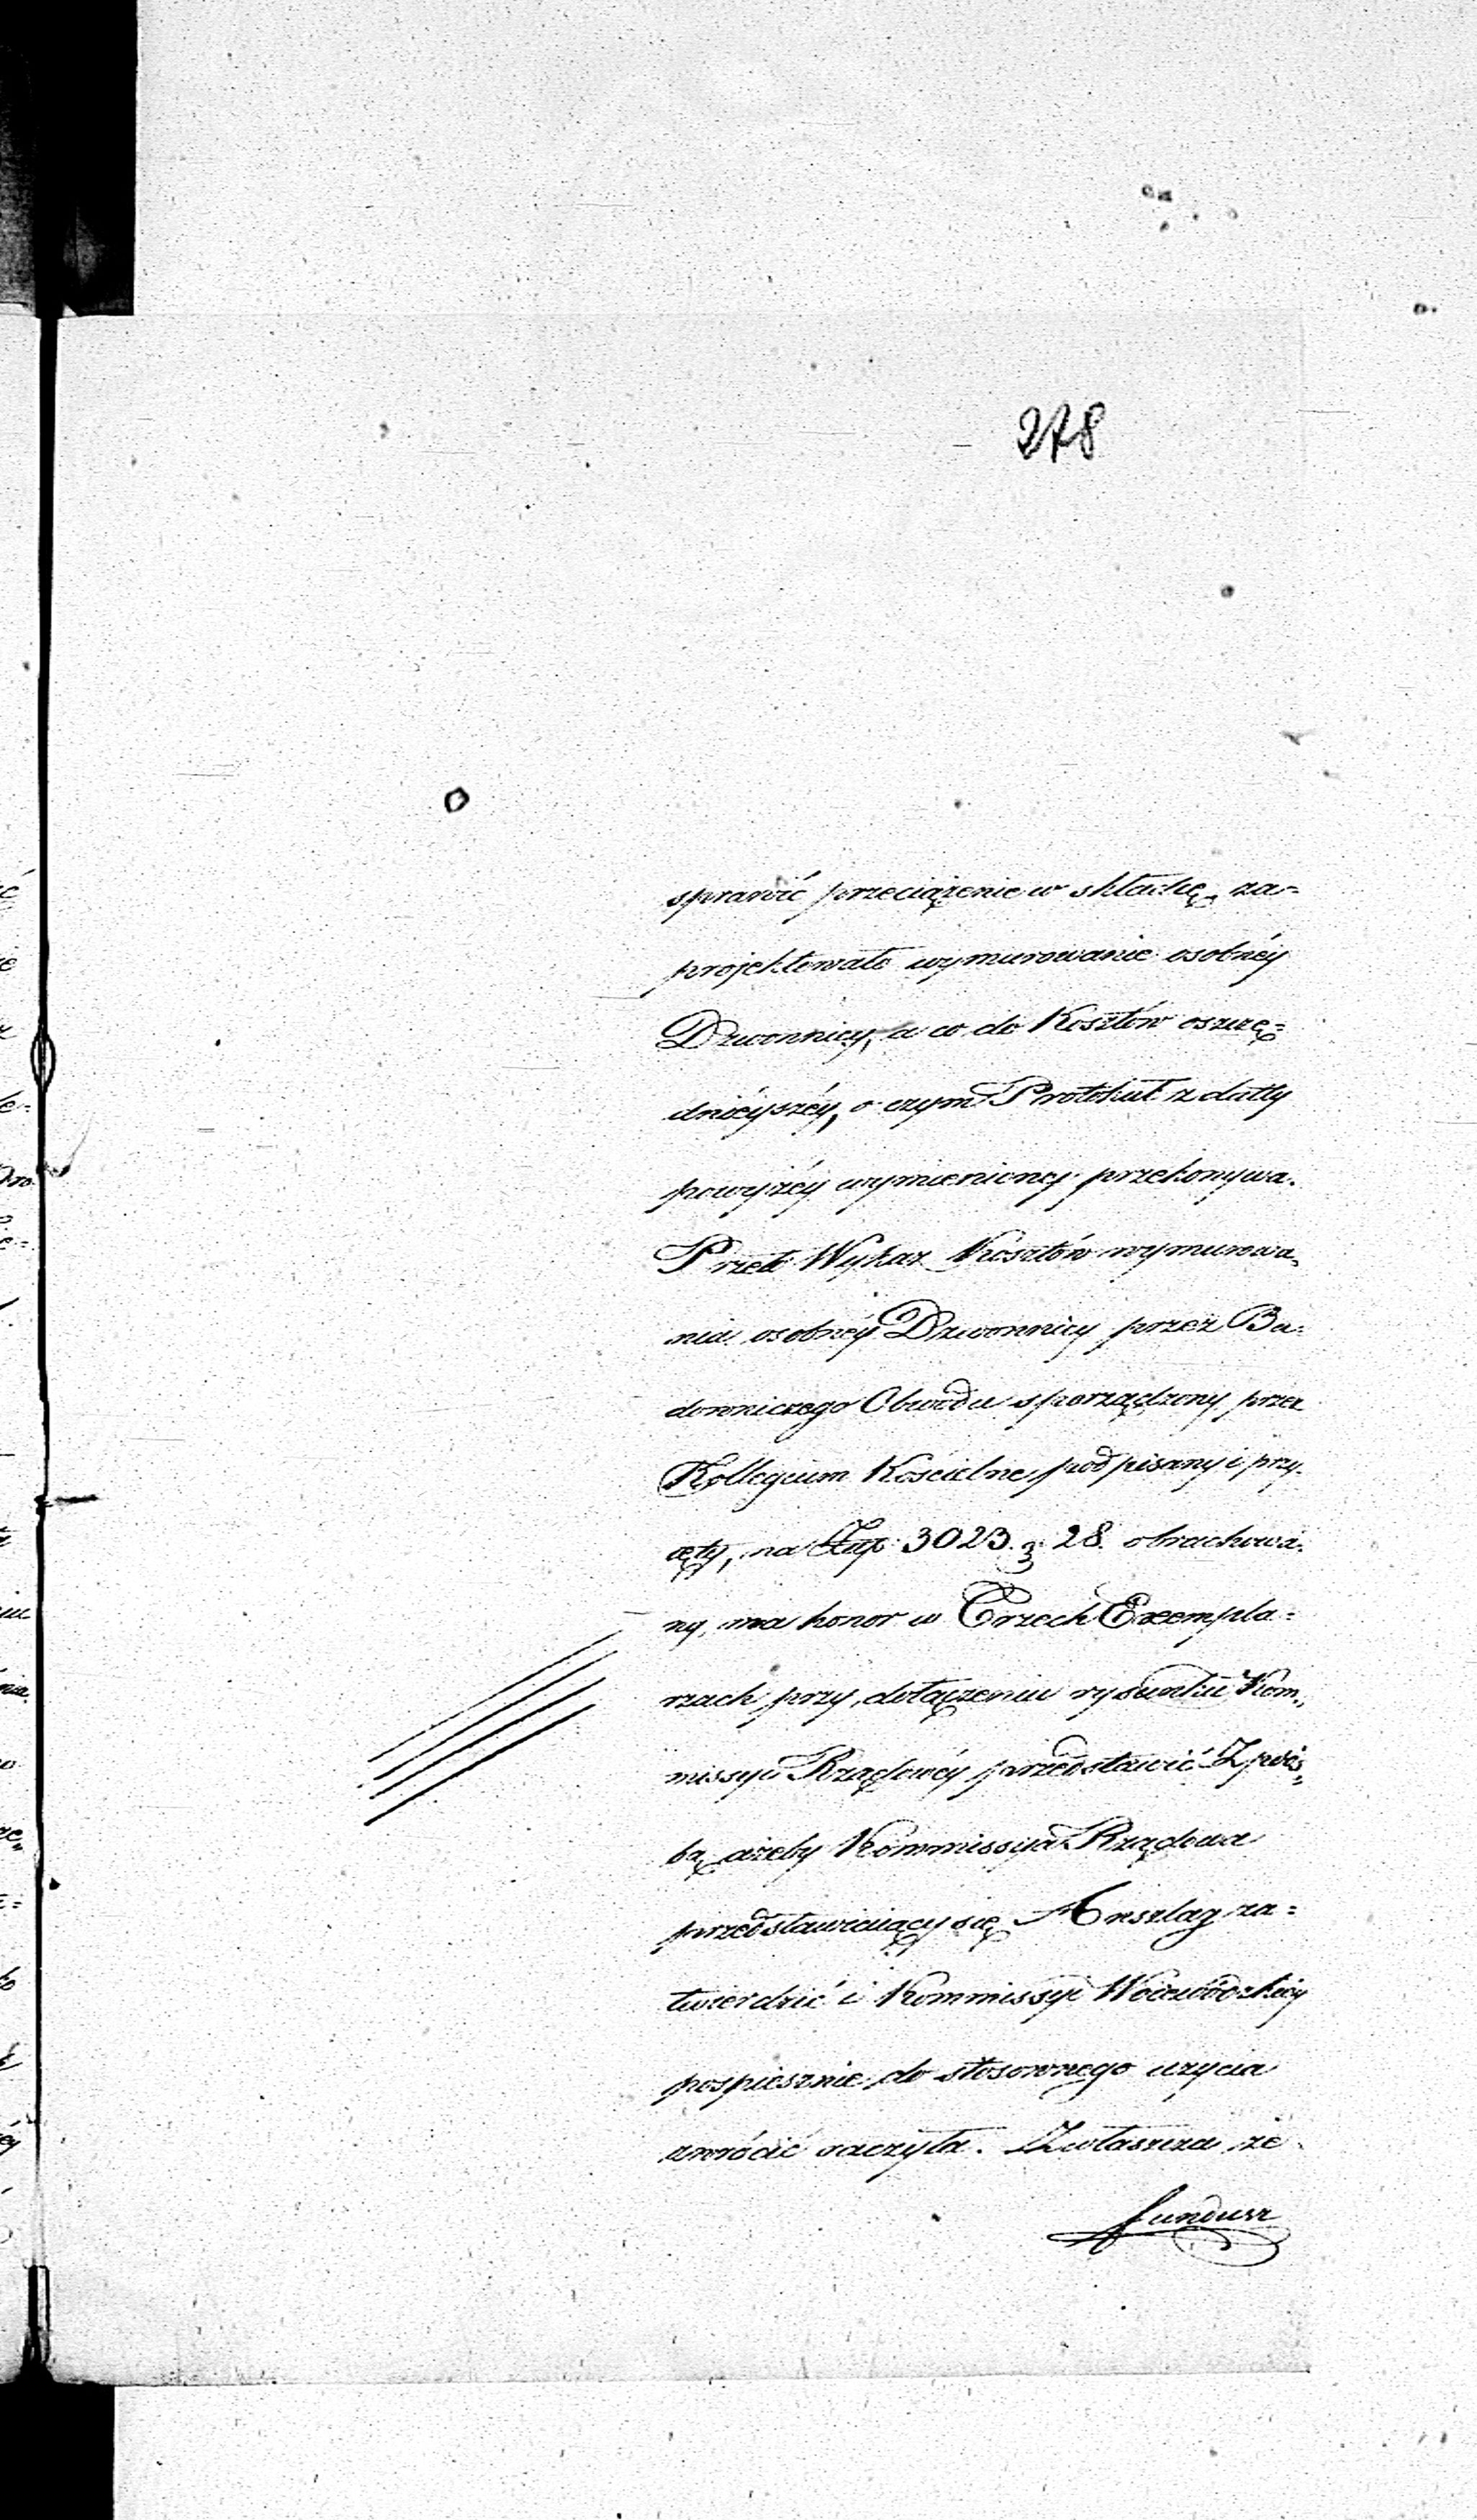 278
sprawić przeciążenie w składkę za=
projektowało wymurowanie osobnéy
Dzwonnicy, a co do Kosztów oszczę=
dnieyszéy, o czym Protokuł z datty
powyżéy wymienioney przekonywa.
Przeto Wykaz Kosztów wymurowa„
nia osobnéy Dzwonnicy przez Bu-
downiczego Obwodu sporządzony przez
Kollegium Kościelne podpisany i przy-
ięty, na Złp 3023. g: 28. obrachowa-
ny, ma honor w Trzech Exempla=
rzach przy dołączeniu rysunku Kom„
missyi Rządowéy przedstawić Z proś„
bą ażeby Kommissya Rządowa
przedstawiaiący się Anszlag za=
twierdzić i Kommissyi Woiewódzkiéy
pospiesznie do stosownego użycia
zwrócić raczyła. Zwłaszcza że
fundusz